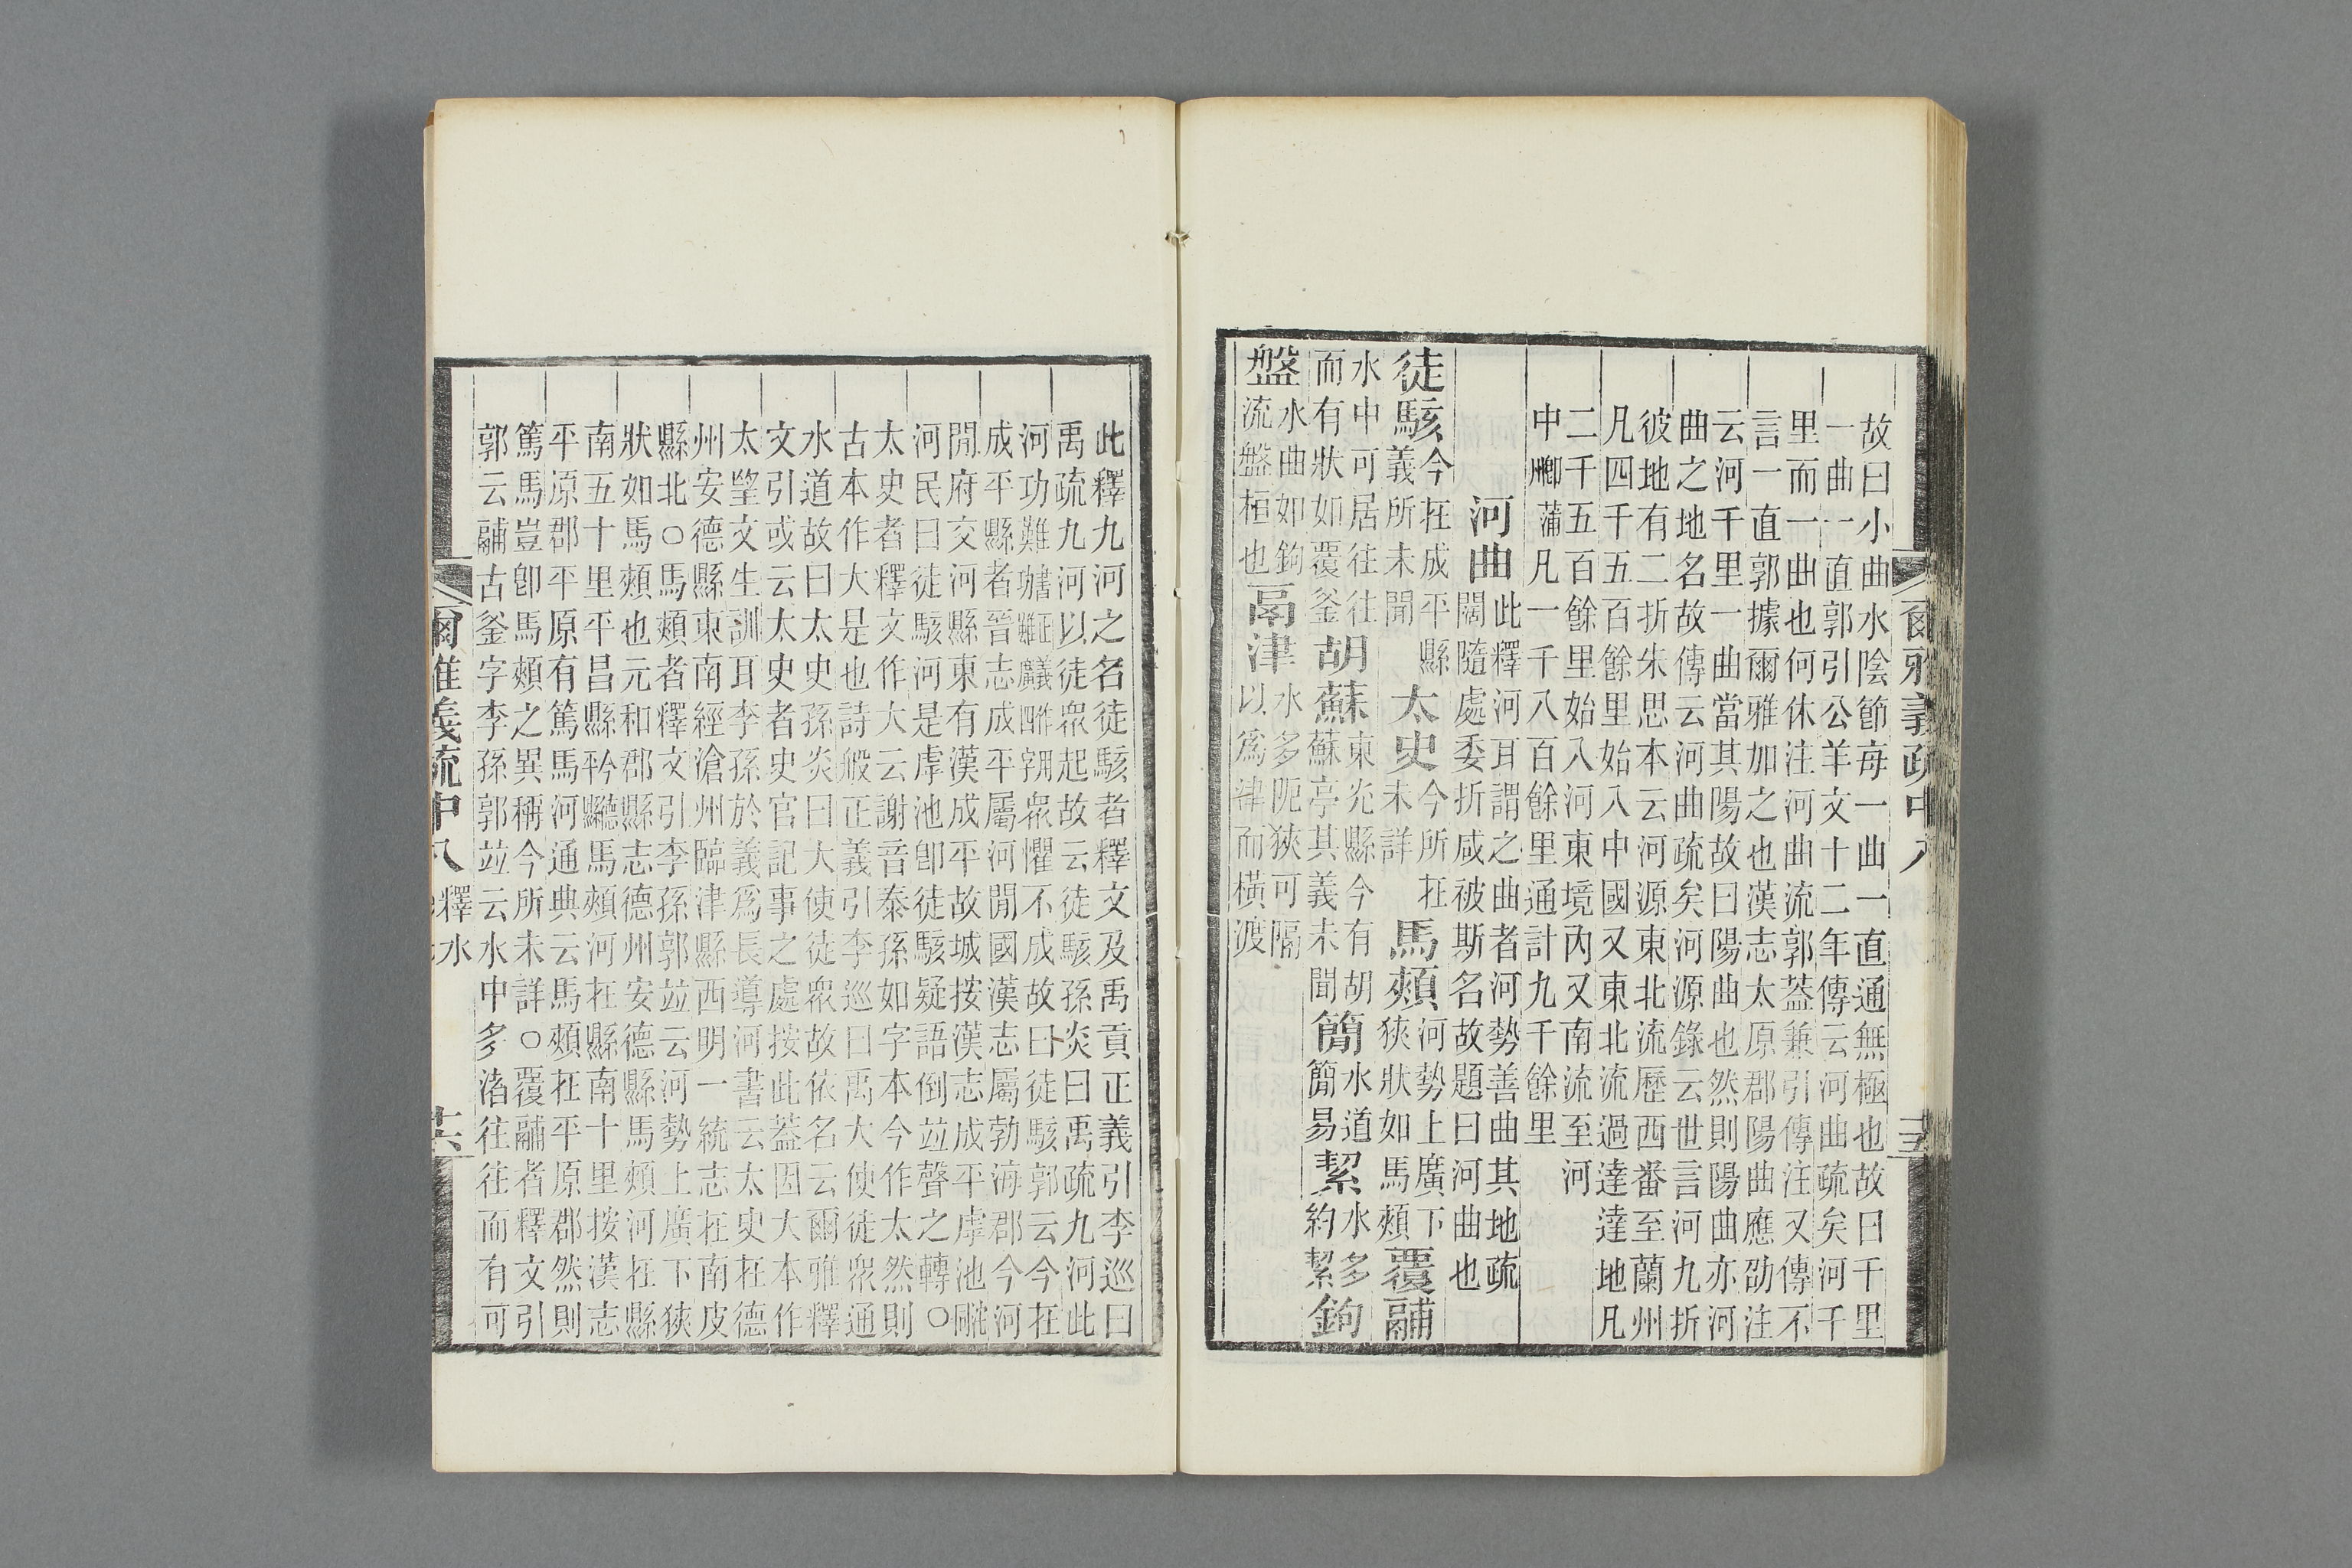 故曰小曲水陰節每一曲一直通無極也故曰千里
一曲一直郭引公羊文十二年傳云河曲疏矣河千
里而一曲也何休注河曲流郭葢兼引傳注又傳不
言一直郭據爾雅加之也漢志太原郡陽曲應劭注
云河千里一曲當其陽故曰陽曲也然則陽曲亦河
曲之地名故傳云河曲疏矣河源錄云世言河九折
彼地有二折朱思本云河源東北流歷西番至蘭州
凡四千五百餘里始入中國又東北流過達達地凡
二千五百餘里始入河東境內又南流至河
中 蒲凡一千八百餘里通計九千餘里
河曲此釋河耳謂之曲者河勢善曲其地疏
闊隨處委折咸被斯名故題曰河曲也
徒駭今在成平縣義所未聞太史今所在未詳馬頰河勢上廣下狹狀如馬頰覆鬴
水中可居往往而有狀如覆釜胡蘇東兖縣今有胡蘇亭其義未聞簡水道簡易絜水多約絜鉤
盤水曲如鉤流盤桓也鬲津水多阨狹可隔以爲津而橫渡
爾雅義疏中八
此釋九河之名徒駭者釋文及禹貢正義引李巡曰
禹疏九河以徒衆起故云徒駭孫炎曰禹疏九河此
河功難 衆懼不成故曰徒駭郭云今在
成平縣者晉志成平屬河閒國漢志屬勃海郡今河
閒府交河縣東有漢成平故城按漢志成平虖池
河民曰徒駭河是虖池卽徒駭疑語倒竝聲之轉○
太史者釋文作大云謝音泰孫如字本今作太然則
古本作大是也詩般正義引李巡曰禹大使徒衆通
水道故曰太史孫炎曰大使徒衆故依名云爾雅釋
文引或云太史者史官記事之處按此葢因大本作
太望文生訓耳李孫於義爲長導河書云太史在德
州安德縣東南經滄州臨津縣西明一統志在南皮
縣北○馬頰者釋文引李孫郭竝云河勢上廣下狹
狀如馬頰也元和郡縣志德州安德縣馬頰河在縣
南五十里平昌縣 馬頰河在縣南十里按漢志
平原郡平原有篤馬河通典云馬頰在平原郡然則
篤馬豈卽馬頰之異稱今所未詳○覆鬴者釋文引
郭云鬴古釜字李孫郭竝云水中多渚往往而有可
爾雅義疏中八
釋水